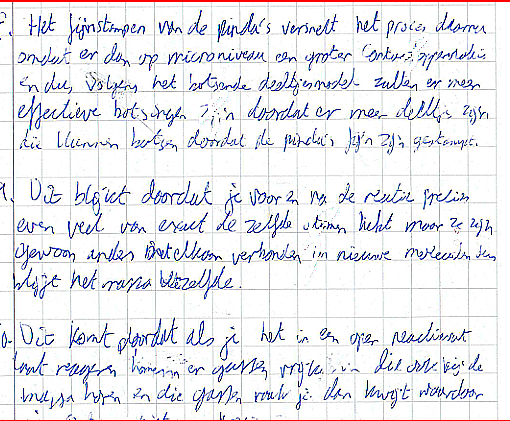 Het fijnstampen van de pinda's versnelt het proces daarom
omdat er dan op microniveau een groter contactoppervlak is
en dus volgens het botsende deeltjesmodel zullen er meer
effectieve botsingen zijn doordat er meer deeltjes zijn
die kunnen botsen doordat de pinda's fijn zijn gestampt.
9. Dit blijft doordat je voor en na de reactie precies
even veel van exact de zelfde atomen hebt maar ze zijn
gewoon anders met elkaar verbonden in nieuwe moleculen dus
blijft het massa hetzelfde.
10. Dit komt doordat als je het in een open reactievat
laat reageren komen er gassen vrij die ook bij de
massa horen en die gassen raak je dan kwijt waardoor